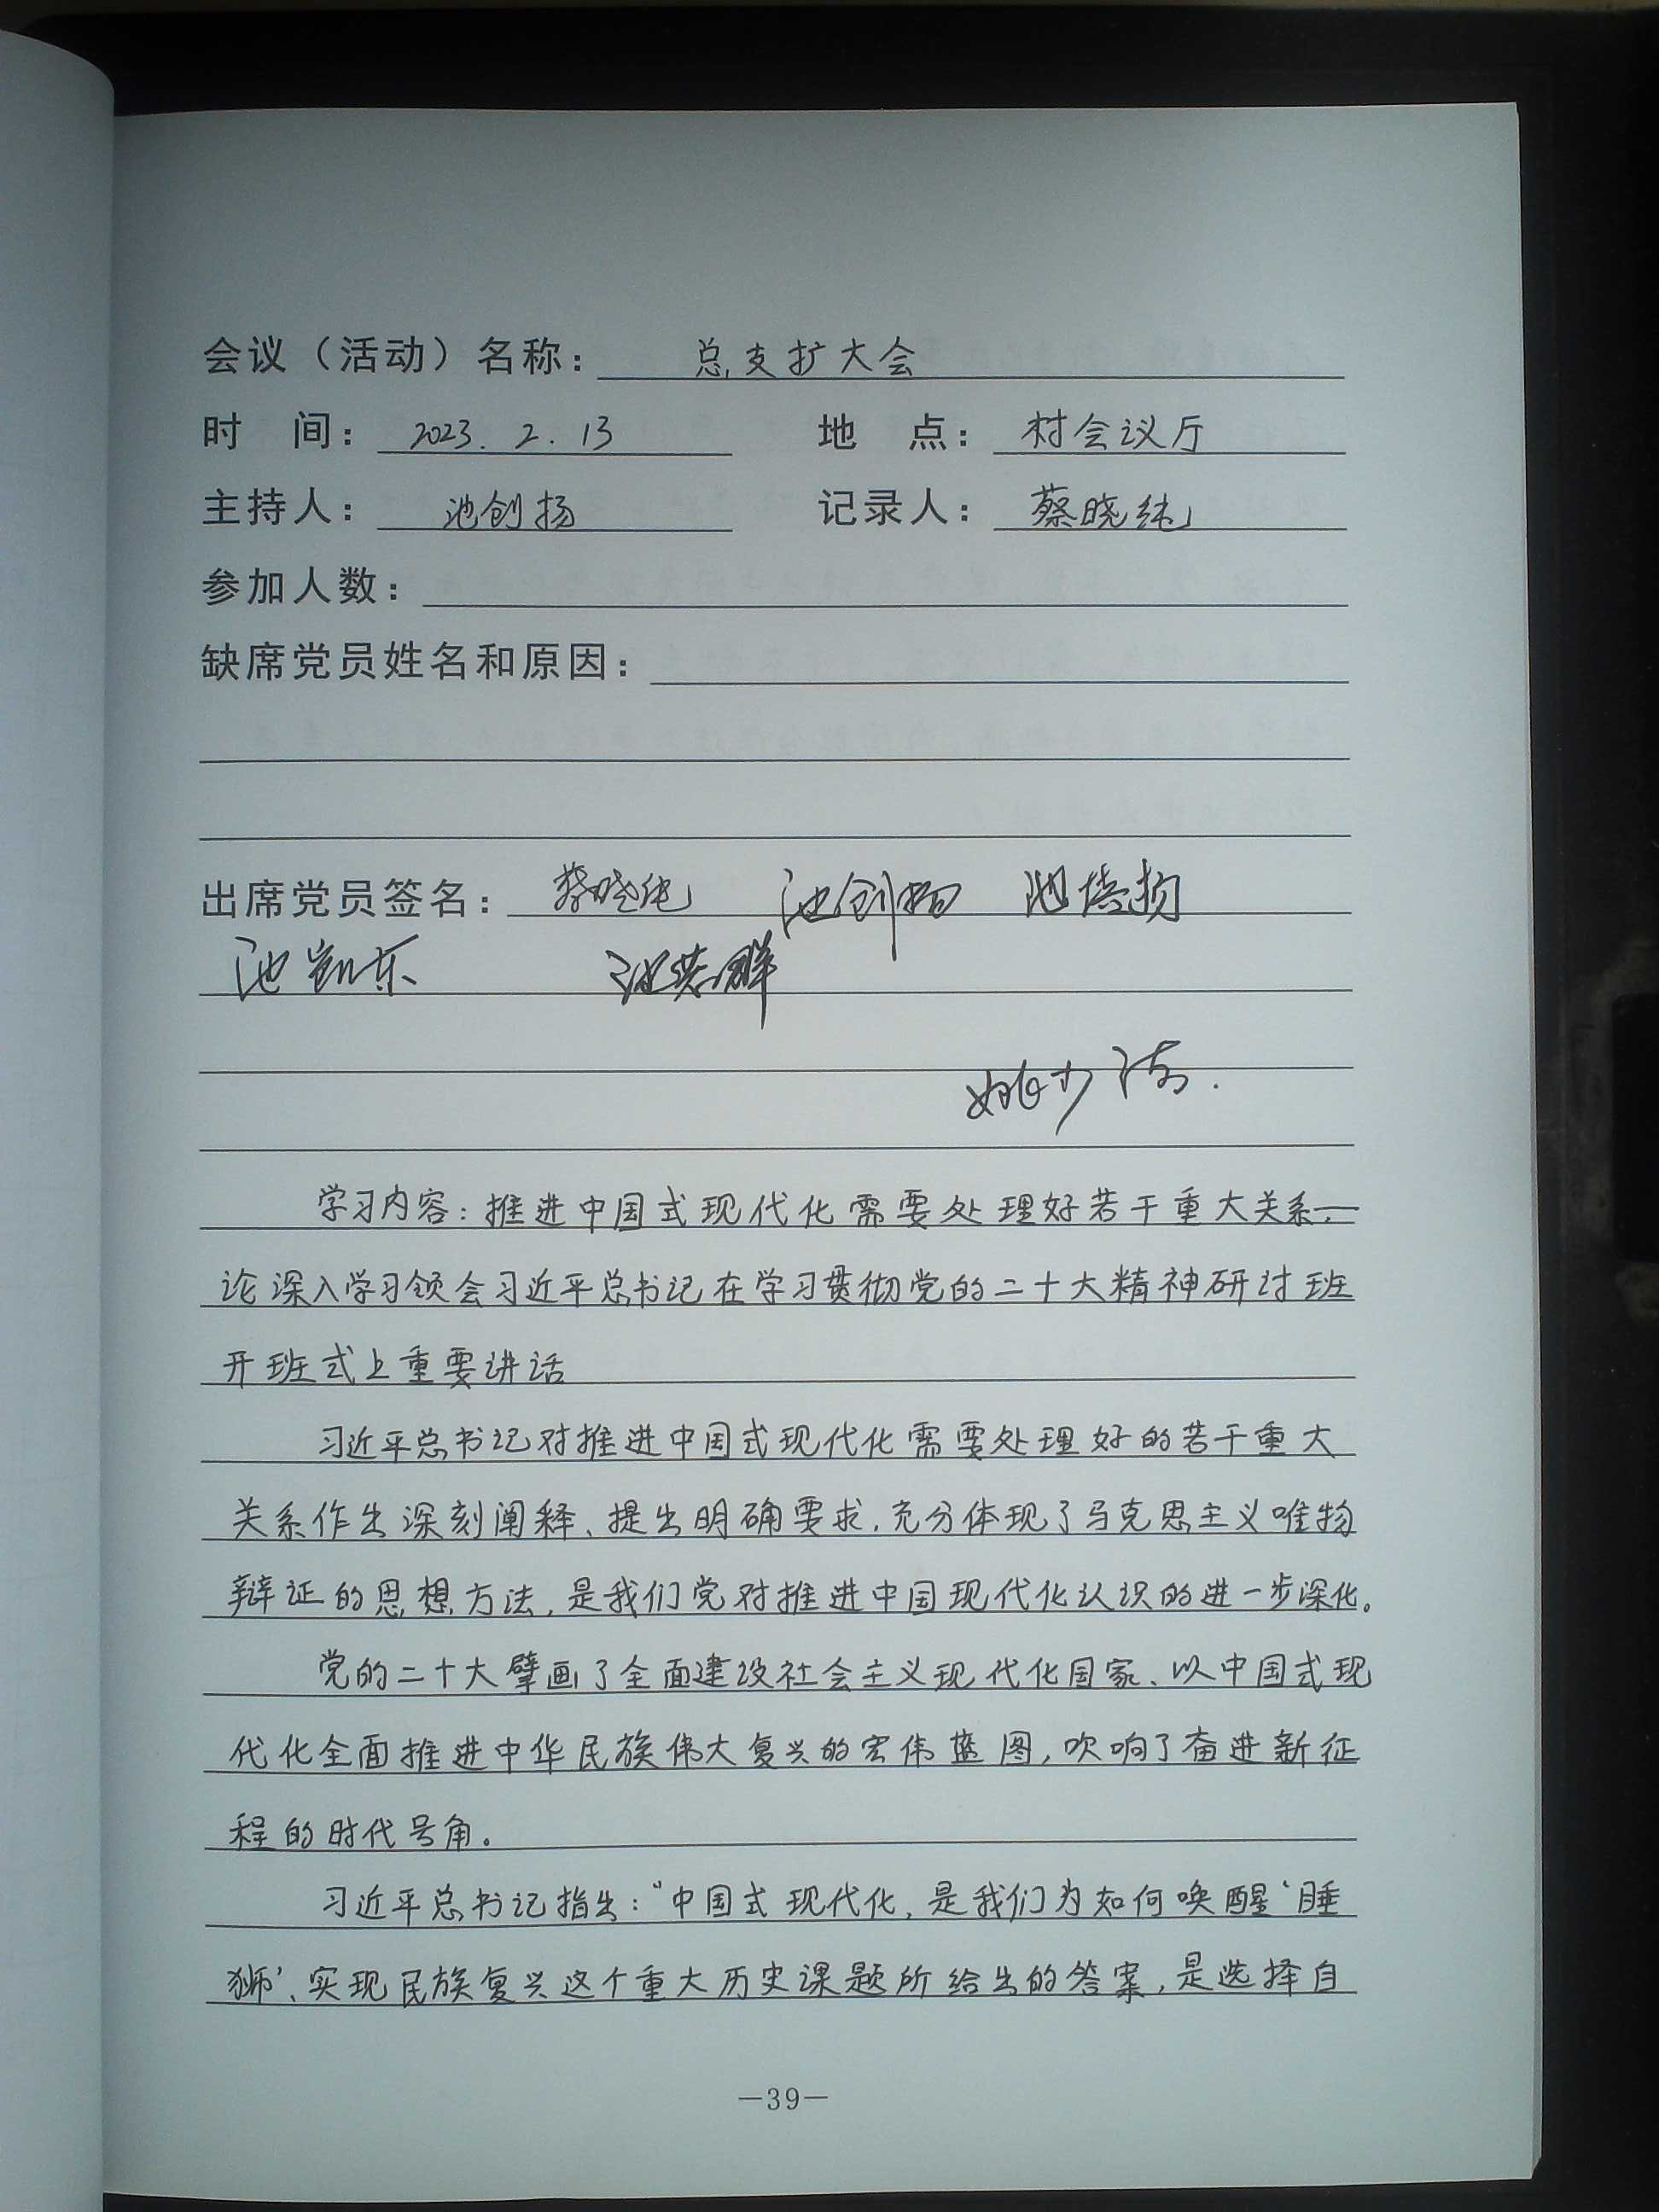 会议（活动）名称： 总支扩大会
时 间： 2023.2.13 地 点： 村会议厅
主持人： 池创扬 记录人： 蔡晓纯
参加人数：
缺席党员姓名和原因：
出席党员签名： 蔡晓纯 池创扬
池凯东
姚少
学习内容：推进中国式现代化需要处理好若干重大关系一
论深入学习领会习近平总书记在学习贯彻党的二十大精神研讨班
开班式上重要讲话
习近平总书记对推进中国式现代化需要处理好的若干重大
关系作出深刻阐释、提出明确要求，充分体现了马克思主义唯物
辩证的思想方法，是我们党对推进中国现代化认识的进一步深化。
党的二十大擘画了全面建设社会主义现代化国家、以中国式现
代化全面推进中华民族伟大复兴的宏伟蓝图，吹响了奋进新征
程的时代号角。
习近平总书记指出：“中国式现代化，是我们为如何唤醒‘睡
狮’、实现民族复兴这个重大历史课题所给出的答案，是选择自
—39—